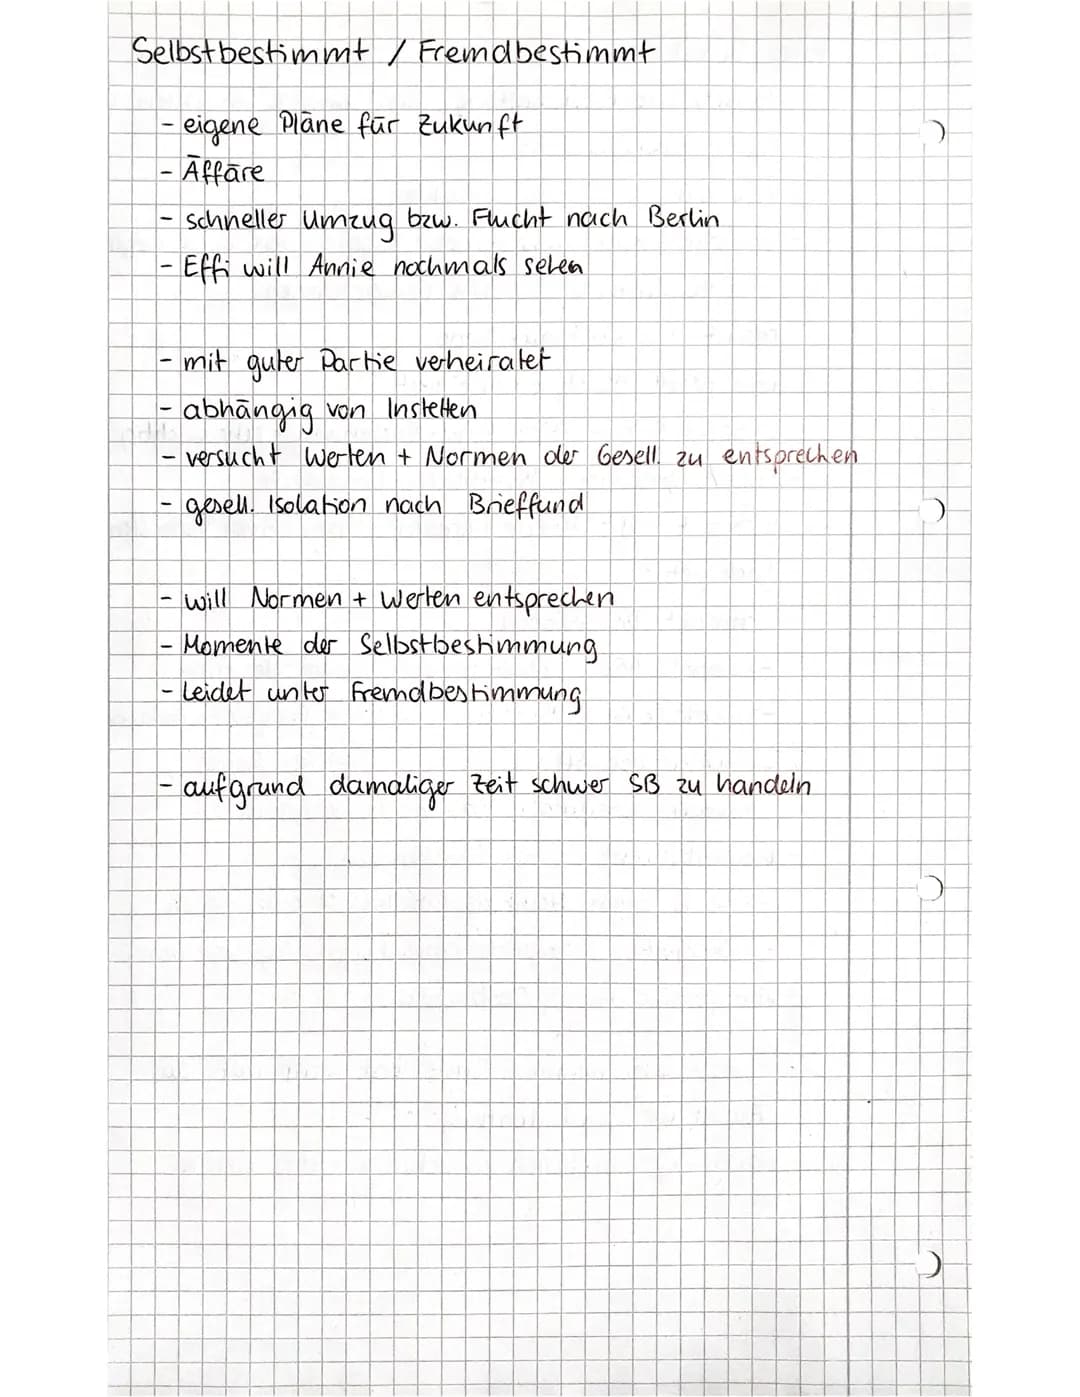 Selbstbestimmt / Fremdbestimmt
- eigene Pläne für Zukunft
- Äffäre
- schneller Umzug bzw. Flucht nach Berlin
- Effi will Annie nochmals sehen
- mit guter Partie verheiratet
- abhängig von Instetten
- versucht Werten + Normen der Gesell. zu entsprechen
- gesell. Isolation nach Brieffund
- will Normen + Werten entsprechen
- Momente der Selbstbestimmung
- Leidet unter Fremdbestimmung
- aufgrund damaliger Zeit schwer SB zu handeln